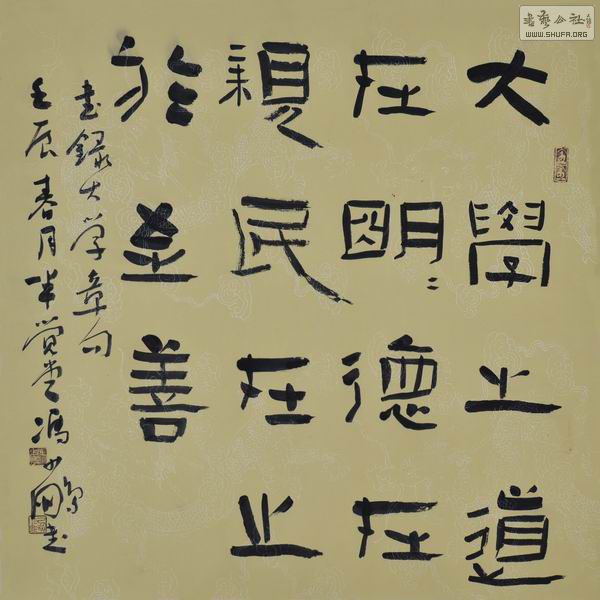 大學之道
在明〻德在
親民在止
於至善
书錄大学章句
壬辰春月半觉堂馮少鹏书
書藝公社
WWW.SHUFA.ORG